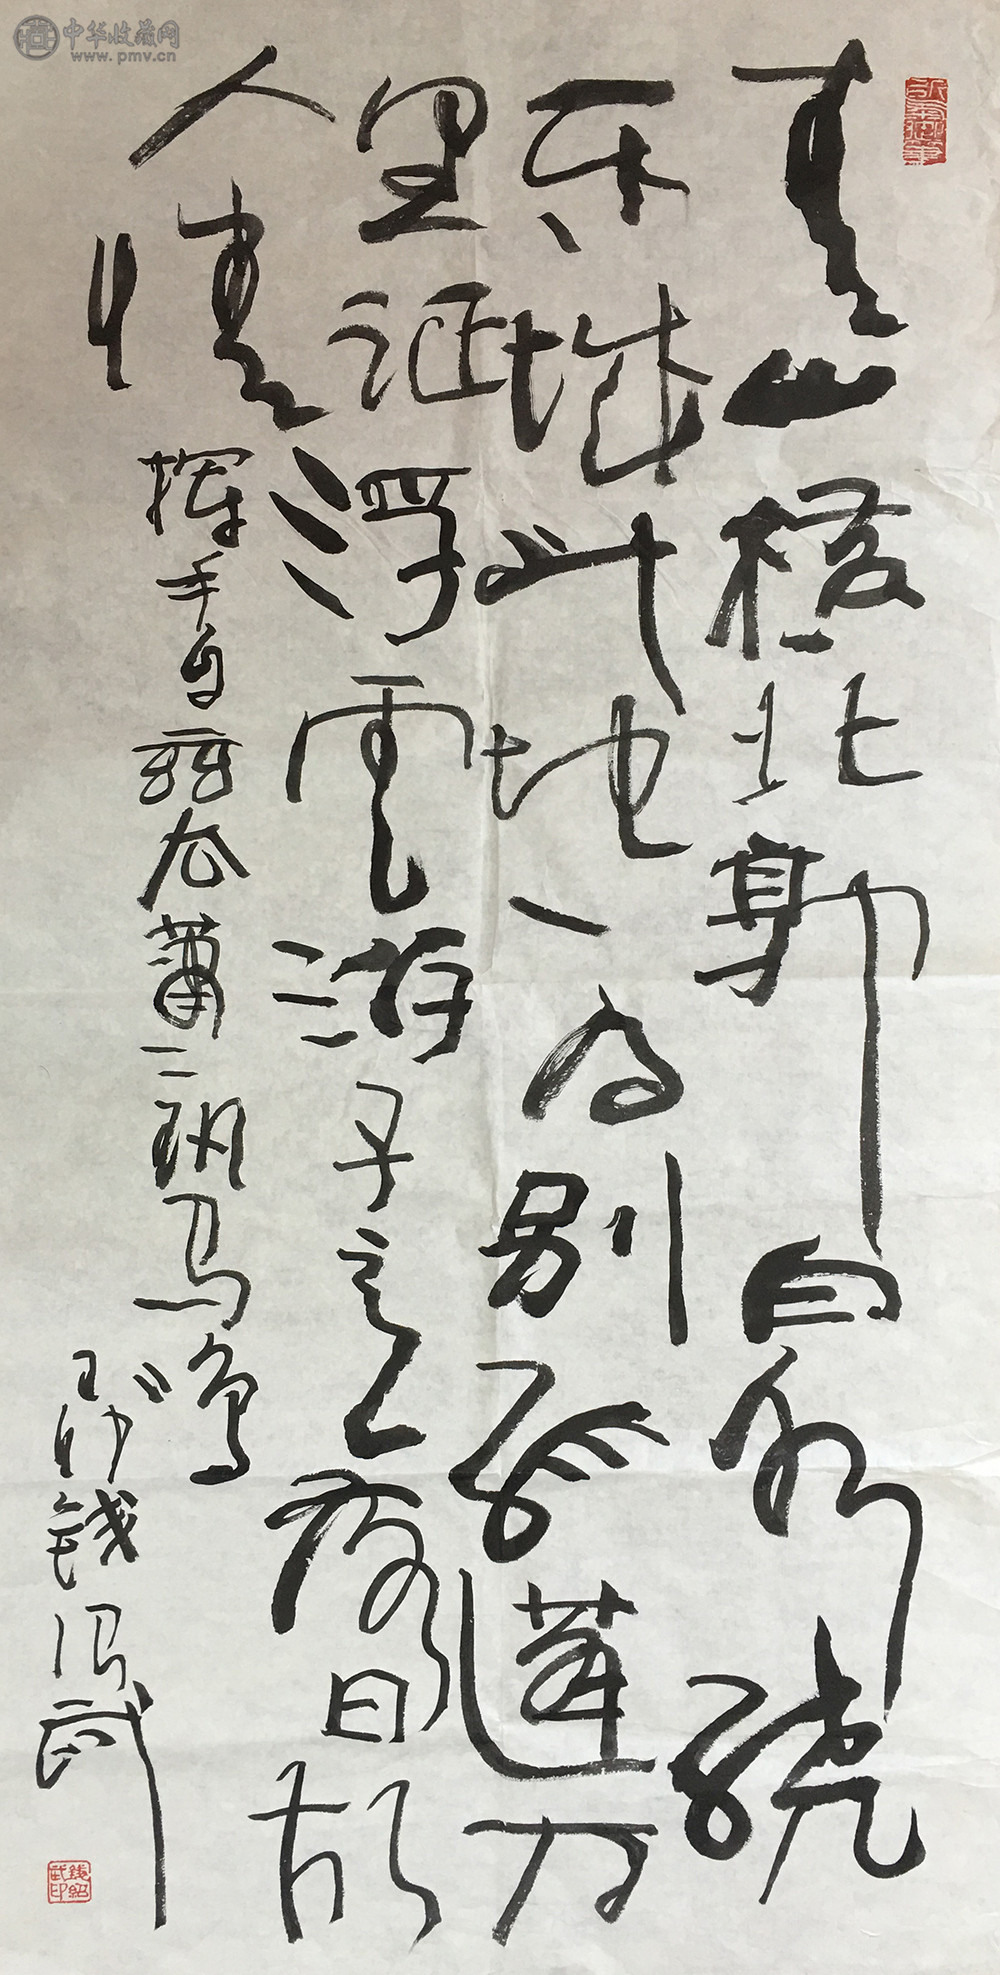 中华收藏网
www.pmv.cn
青山横北郭白水绕
东城此地一为别孤蓬万
里征浮云游子意落日故
人情
挥手自兹去萧二班马鸣
钱绍武
钱绍武印